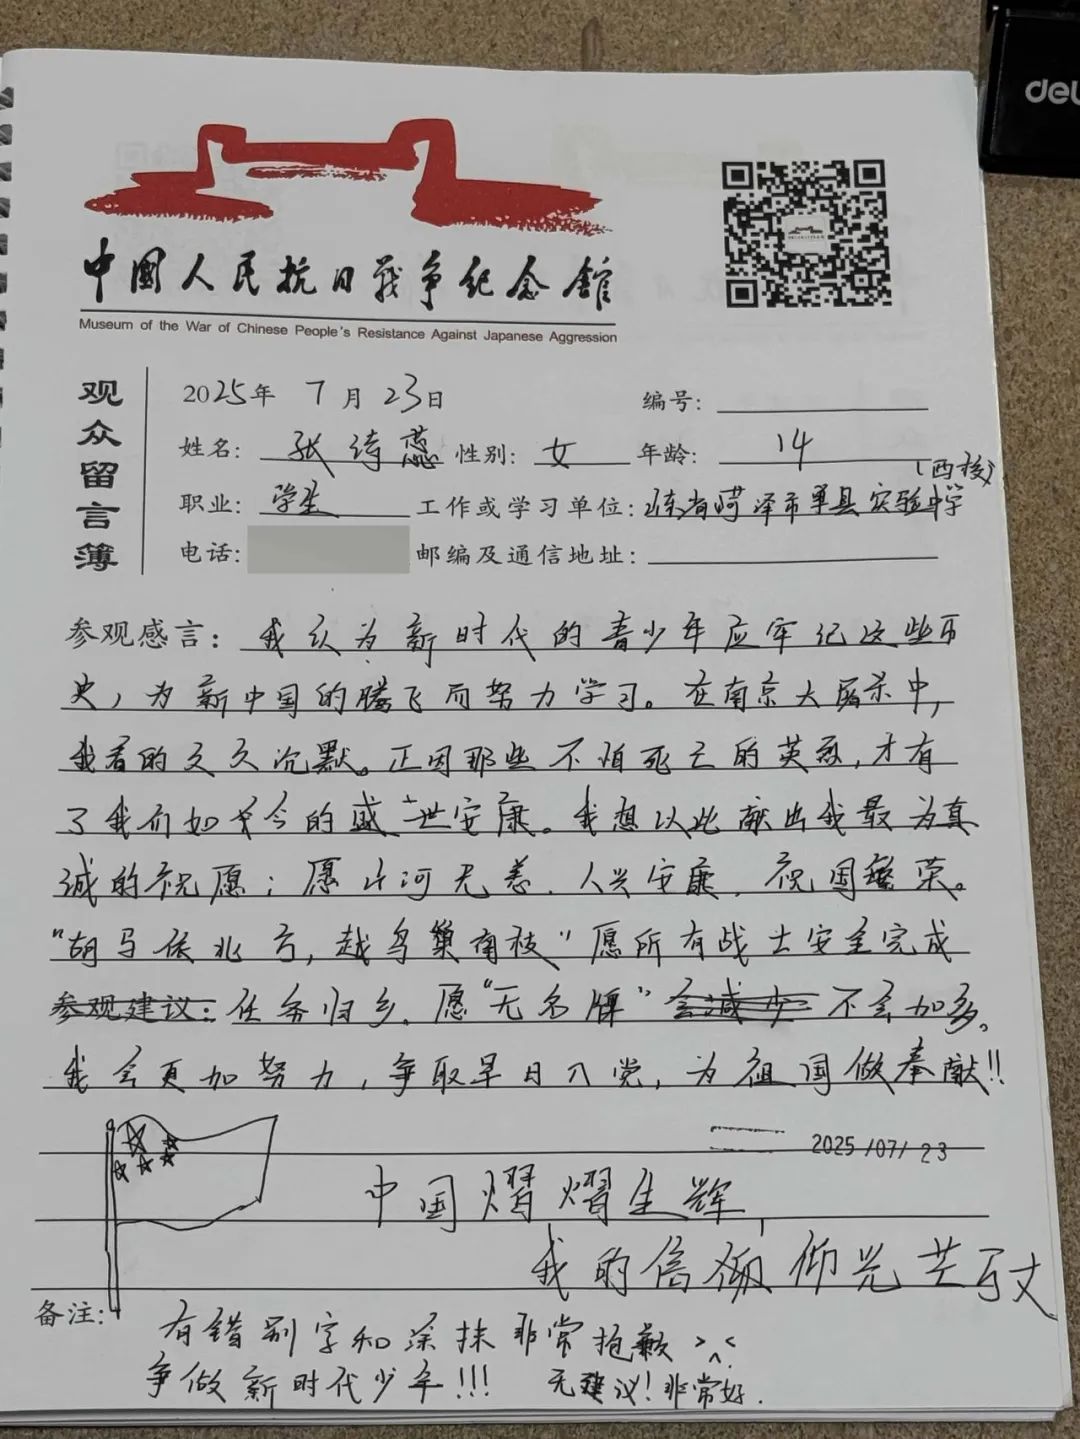 deli
中國人民抗日戰争纪念館
Museum of the War of Chinese People's Resistance Against Japanese Aggression
观众留言簿
2025年 7月 23日 编号:
姓名: 张绮蕊 性别: 女 年龄: 14
(西校)
职业: 学生 工作或学习单位: 山东省菏泽市单县实验中学
电话: 邮编及通信地址:
参观感言: 我认为新时代的青少年应牢记这些历
史，为新中国的腾飞而努力学习。在南京大屠杀中，
我看的久久沉默。正因那些不怕死亡的英烈，才有
了我们如今的盛世安康。我想以此献出我最为真
诚的祝愿：愿山河无恙．人兴安康．祝国繁荣。
“胡马依北方，越鸟巢南枝”愿所有战士安全完成
参观建议: 任务归乡．愿“无名牌”会减少 不会加多。
我会更加努力，争取早日入党，为祖国做奉献!!
2025/07/23
中国熠熠生辉
我的信仰光芒万丈
备注: 有错别字和涂抹非常抱歉 >^<
争做新时代少年!!! 无建议!非常好.